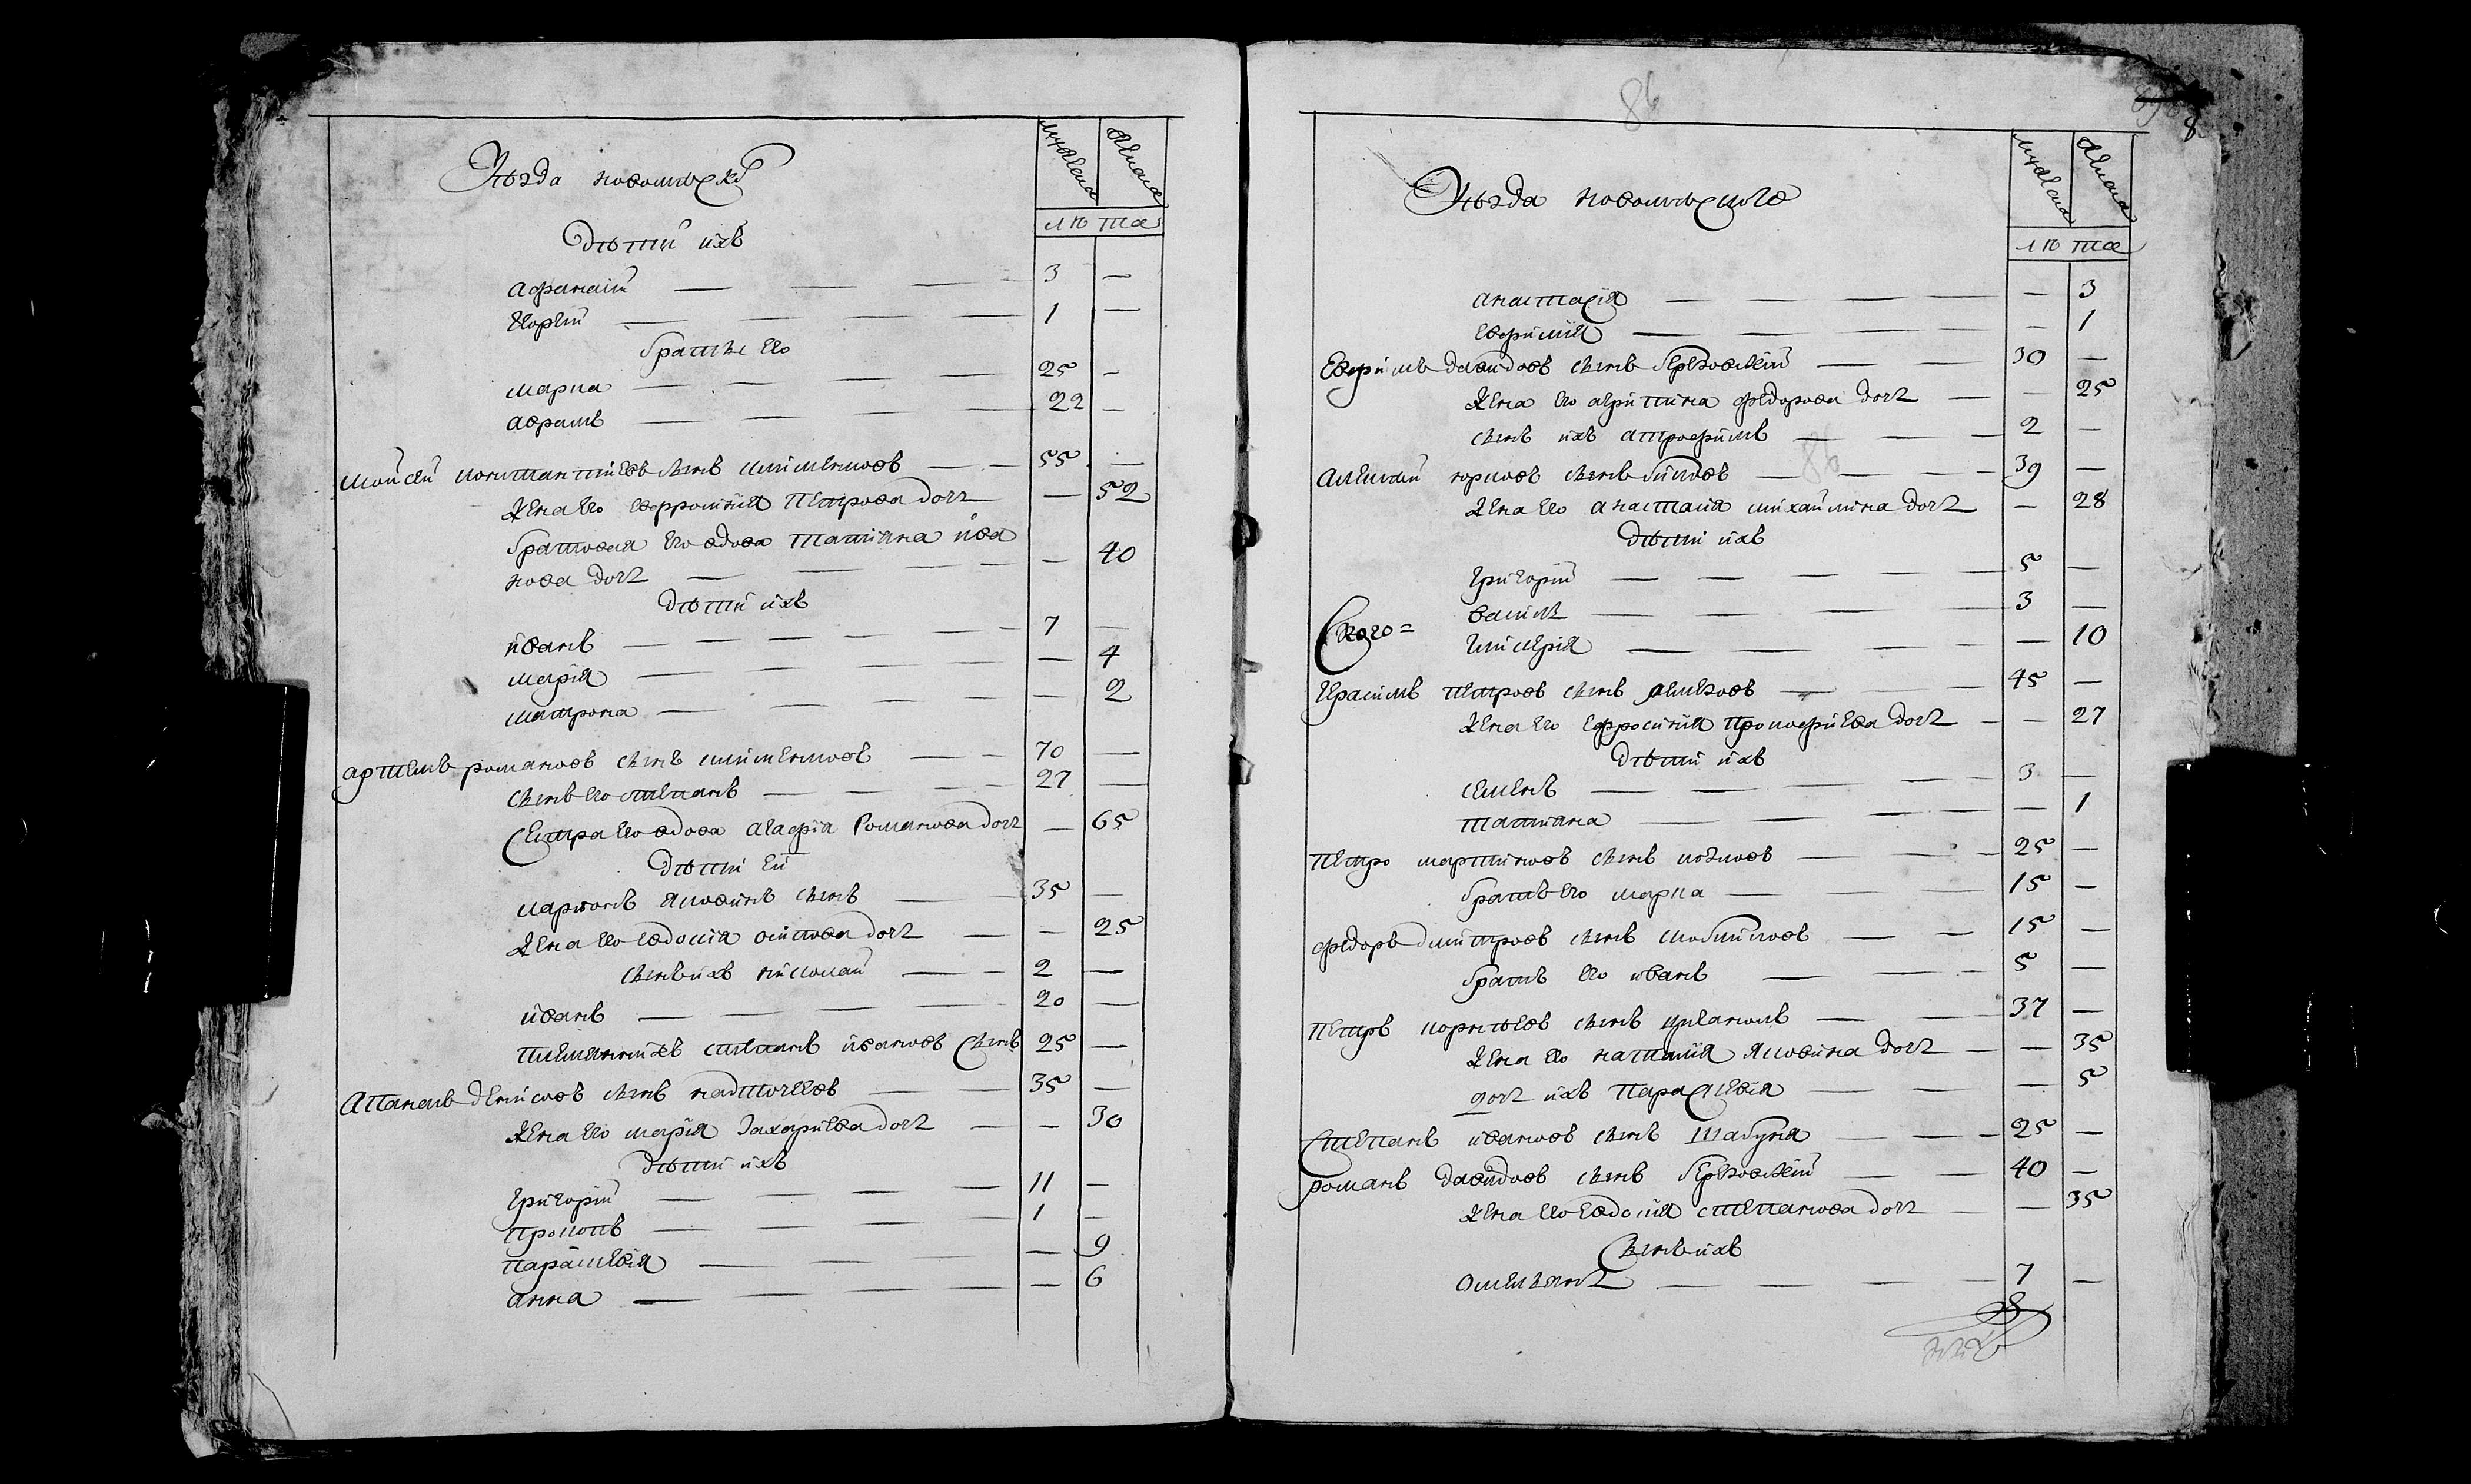 Уѣзда новомѣск
мужеска
женска
лѣта
дѣти ихъ
афанаси — — — 3 —
егорги — — — 1 —
братье его
марка — — — 25 —
аврамъ — — — 22 —
моисеи констан тиевъ сынъ — — 55 —
жена его евфросиния петрова доч — 52
братовая его вдова татияна ива
нова доч — — — 40
дѣти ихъ
иванъ — — — 7 —
мария — — — 4
матрона — — — 2
артемъ романовъ сынъ — — 70 —
сынъ его степанъ — — — 27 —
сестра его вдова агафиа романова доч — 65
дѣти еи
карпонъ яковинъ сынъ — — 35 —
жена его евдокиа осипова доч — — 25
сынъ ихъ николаи — — 2 —
иванъ — — — 20 —
племянникъ степанъ ивановъ сынъ 25 —
апанасъ денисовъ сынъ надточеевъ — — 35 —
жена его мария захариева доч — — 30
дѣти ихъ
григории — — — 11 —
прокопъ — — — 1 —
параскевия — — — 9
анна — — — 6
86
8
Уѣзда новомѣского
мужеска
женска
лѣта
анастасия — — — 3
евфимия — — — 1
Евфимъ давидовъ сынъ бережскии — — 30 —
жена его агрипина федорова доч — — 25
сынъ ихъ атрофимъ — — 2 —
86
алексаи юрковъ сынъ — — 39 —
жена его анастасия михаилина доч — 28
дѣти ихъ
григории — — — 5 —
василь — — — 3 —
Ского=
гликерия — — — 10
герасимъ петровъ сынъ — — 45 —
жена его ефросиния прокофиева доч — — 27
дѣти ихъ
семенъ — — — 3 —
татияна — — — 1
петро мартиновъ сынъ — — 25 —
братъ его марка — — 15 —
федоръ дмитровъ сынъ — — 15 —
братъ его иванъ — — 5 —
петръ корнѣевъ сынъ — — 37 —
жена его наталия яковина доч — — 35
доч ихъ параскевия — — 5
степанъ ивановъ сынъ шабуня — — 25 —
романъ давидовъ сынъ бережскии — — 40 —
жена его евдокия степанова доч — — 35
сынъ ихъ
омелянъ — — — 7 —